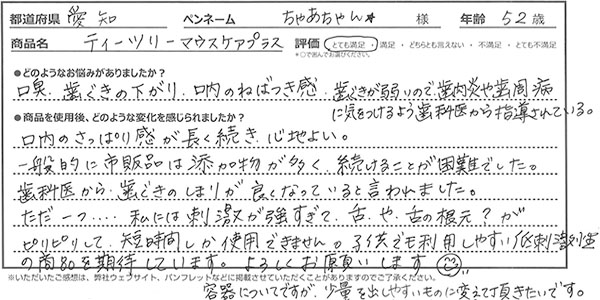 都道府県 愛知 ペンネーム ちゃあちゃん★ 様 年齢 52歳
商品名 ティーツリーマウスケアプラス 評価 とても満足・満足・どちらとも言えない・不満足・とても不満足
※○で囲んでお選びください。
●どのようなお悩みがありましたか？
口臭、歯ぐきの下がり、口内のねばつき感、歯ぐきが弱いので歯肉炎や歯周病
に気をつけるよう歯科医から指導されている。
●商品を使用後、どのような変化を感じられましたか？
口内のさっぱり感が長く続き、心地よい。
一般的に市販品は添加物が多く、続けることが困難でした。
歯科医から、歯ぐきのしまりが良くなっていると言われました。
ただ一つ‥‥私には刺激が強すぎて、舌、や、舌の根元？が
ピリピリして、短時間しか使用できません。子供でも利用しやすい低刺激型
の商品を期待しています。よろしくお願いします
※いただいたご感想は、弊社ウェブサイト、パンフレットなどに掲載させていただくことがありますのでご了承ください。
容器についてですが、少量を出しやすいものに変えて頂きたいです。